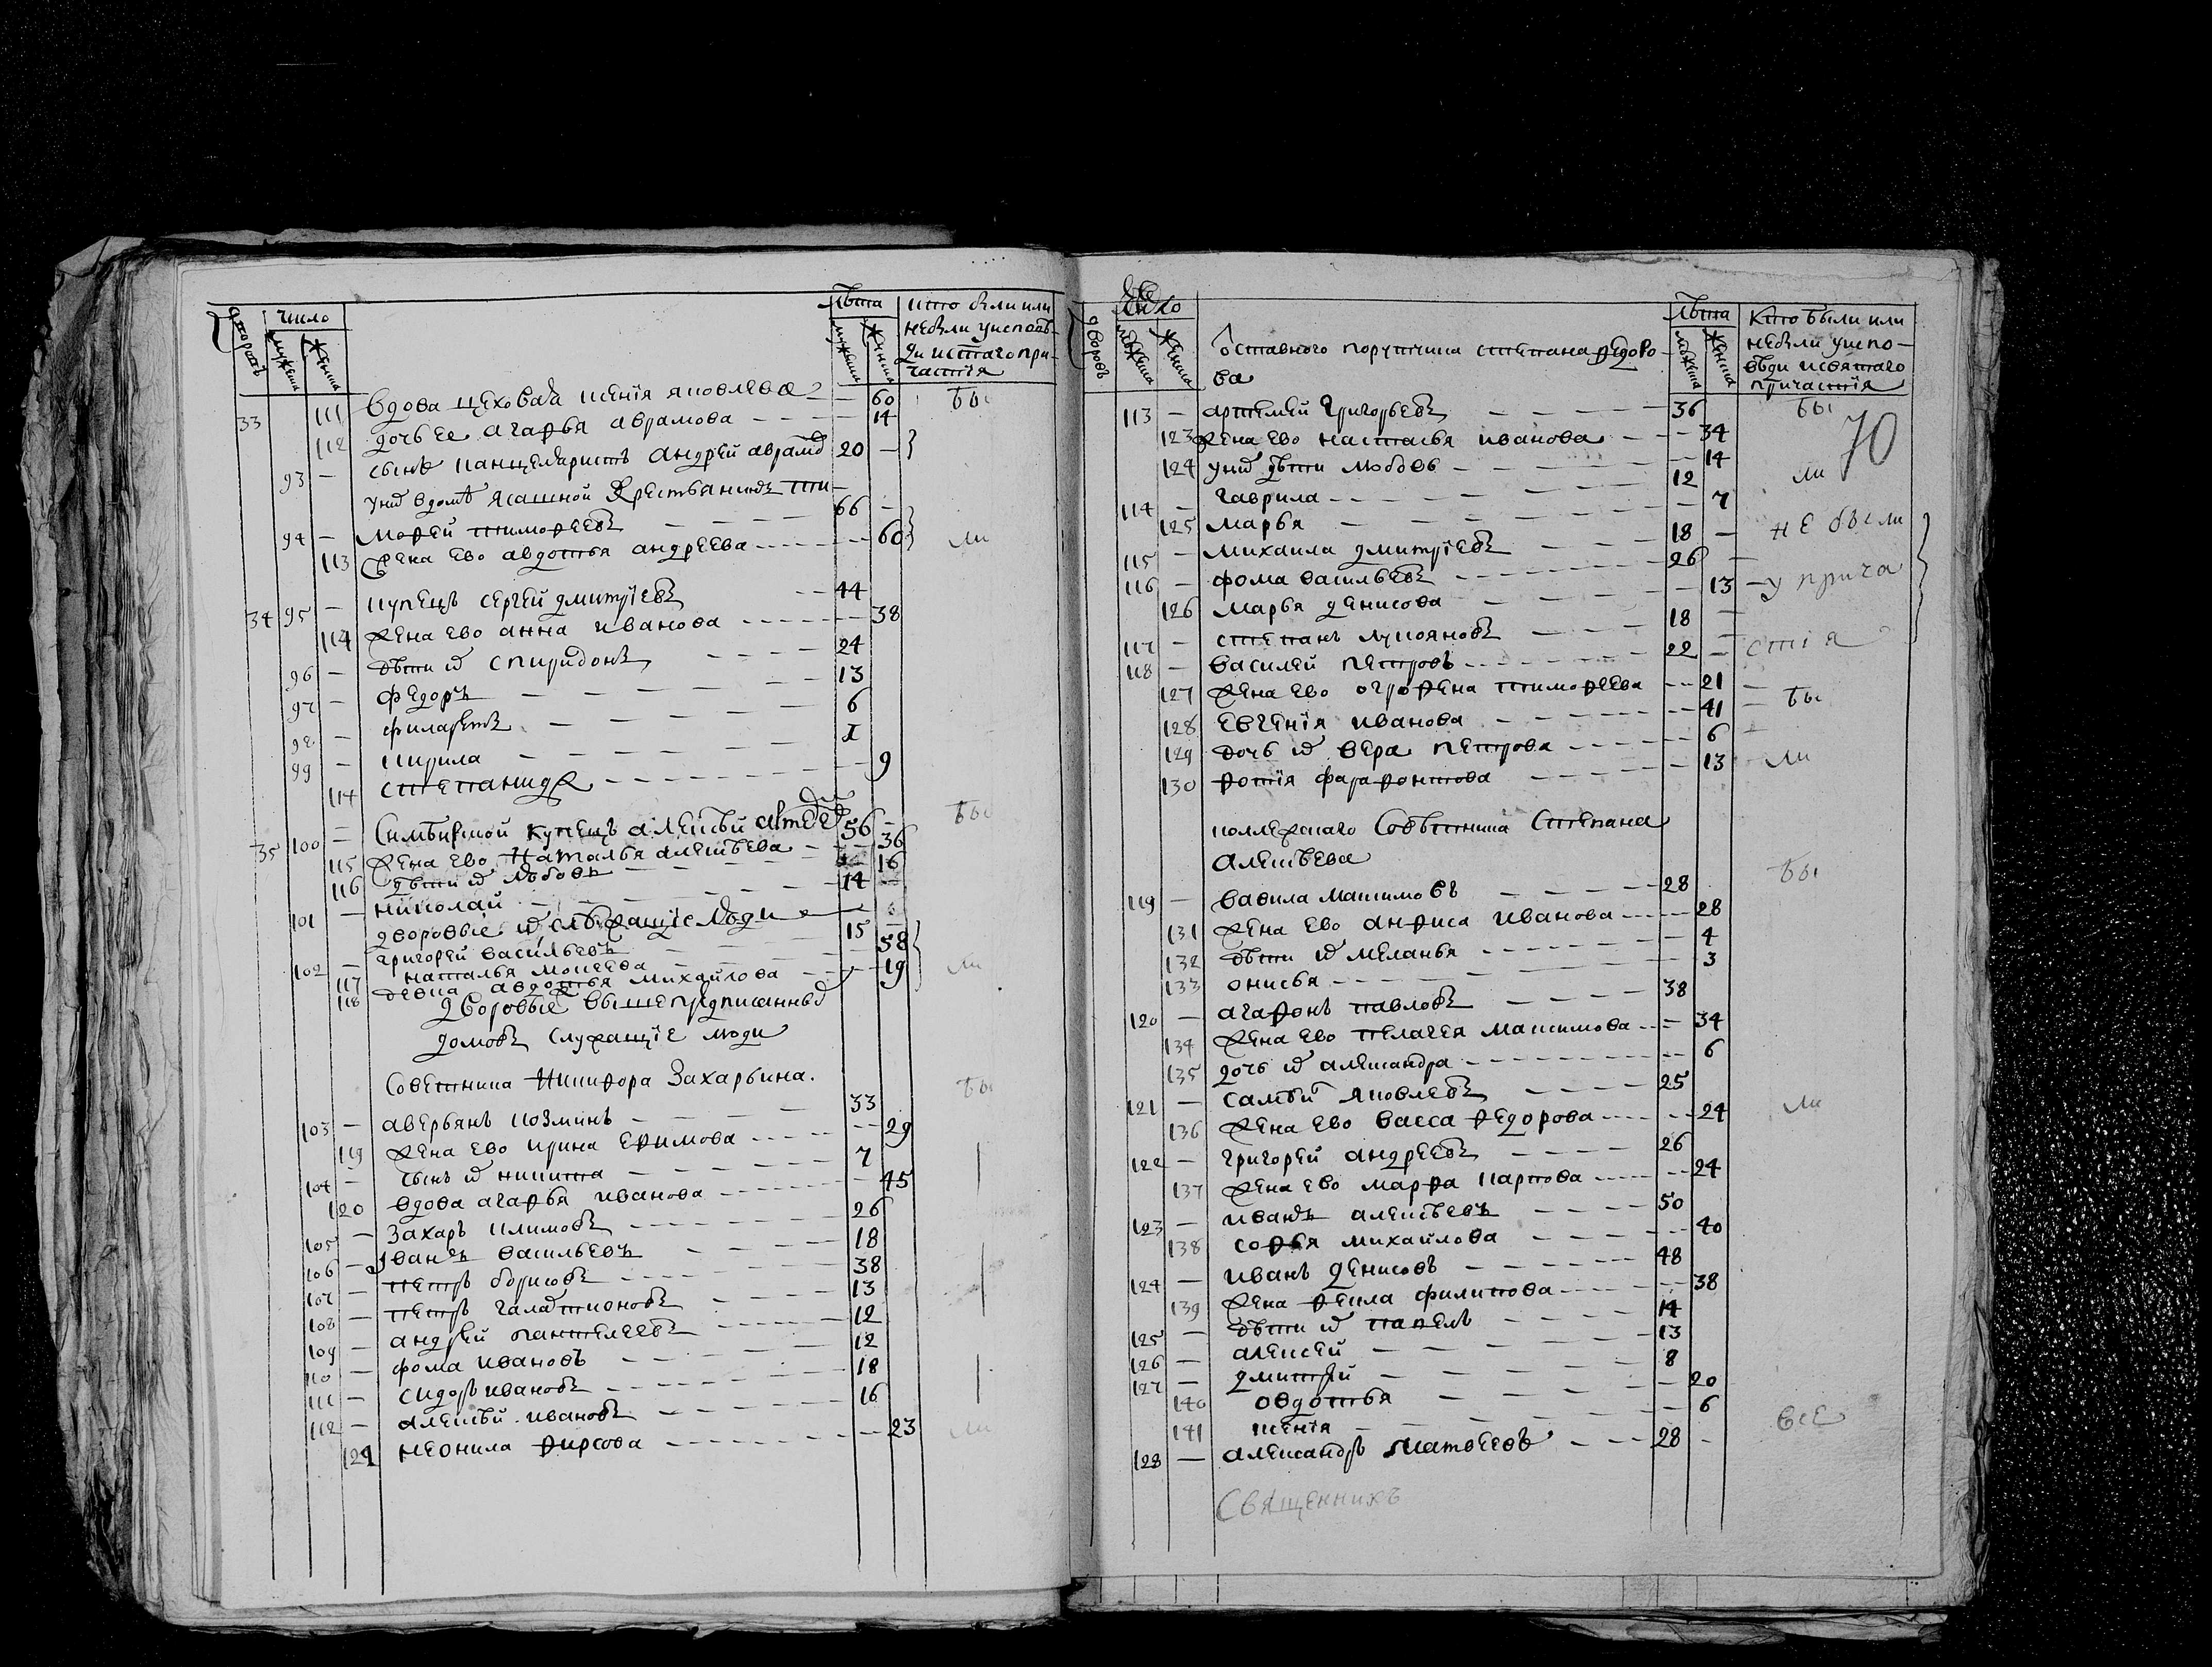 дворовъ
число
мужеска
женска
лѣта
мужеска
женска
кто были или
небыли уисповѣ-
ди истаго при-
частія
33 111 вдова цеховая ксенія яковлева — 60 бы
112 дочь ее агафья аврамова — 14
93 — сынъ канцеляристъ андрей аврамо 20 —
у них вдомѣ ясашной крестьянинъ ти-
94 — мофей тимофеевъ — 66 —
113 жена ево авдотья андреева — 60 ли
34 95 — купецъ сергей дмитріевъ — 44
114 жена ево анна иванова — 38
96 — дѣти их спиридонъ — 24
97 — федоръ — 13
98 — филаретъ — 6
99 — кирила — 1
114 степанида — 9
35 100 — Симбирской купецъ алексѣй 56 — бы
115 жена ево Наталья алексѣева — 36
116 дѣти их любовь — 16
101 — николай — 14
дворовые их служащіе люди
102 — григорей васильевъ 15
117 наталья моисеева — 58
118 девка авдотья михайлова — 19 ли
дворовые вышепрдписанных
домовъ служащіе люди
Советника Никифора Захарьина. бы
103 — аверьянъ козминъ — 33
119 жена ево ирина ефимова — 29
104 — сынъ их никита — 7
120 вдова агафья иванова — 45
105 — захаръ климовъ — 26
106 — Іванъ васильевъ — 18
107 — петръ борисовъ — 38
108 — петръ галактионовъ — 13
109 — андрей пантелеевъ — 12
110 — фома ивановъ — 12
111 — сидоръ ивановъ — 18
112 — алексѣй ивановъ — 16
121 неонила фирсова — 23 ли
дворовъ
число
мужеска
женска
лѣта
мужеска
женска
Кто были или
небыли уиспо-
вѣди исвятаго
причастія
оставного порутчика степана федоро-
ва
113 — артемей григорьевъ — 36 бы
70
123 жена ево настасья иванова — 34
124 у них дѣти любовь — 14
114 — гаврила — 12 ли
125 марья — 7
115 — михаила дмитріевъ — 18 — не были
116 — фома васильевъ — 26 —
126 марья денисова — 13 — у прича
117 — степанъ лукояновъ — 18 —
118 — василей петровъ — 22 — стія
127 жена ево огрофена тимофеева — 21 —
128 евгенія иванова — 41 — бы
129 дочь их вера петрова — 6
130 фотія фарафонтова — 13 ли
коллежскаго Совѣтника Степана
алексѣева
119 — вавила макимовъ — 28 бы
131 жена ево анфиса иванова — 28
132 дѣти их меланья — 4
133 онисья — 3
120 — агафонъ павловъ — 38
134 жена ево пелагея макимова — 34
135 дочь их александра — 6
121 — яковлевъ — 25
136 жена ево васса федорова — 24 ли
122 — григорей андреевъ — 26
137 жена ево марфа карпова — 24
123 — иванъ алексѣевъ — 50
138 софья михайлова — 40
124 — иванъ денисовъ — 48
139 жена фекла филипова — 38
125 — дѣти их павелъ — 14
126 — алексей — 13
127 — дмитрей — 8
140 овдотья — 20
141 ксенія — 6
128 — александръ матвеевъ — 28 — все
Священникъ